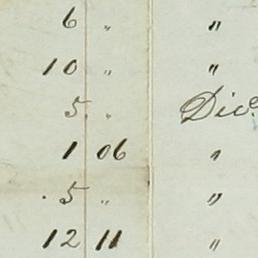 6 " "
10 " "
5 " Div.
1 06 "
5 " "
12 11 "